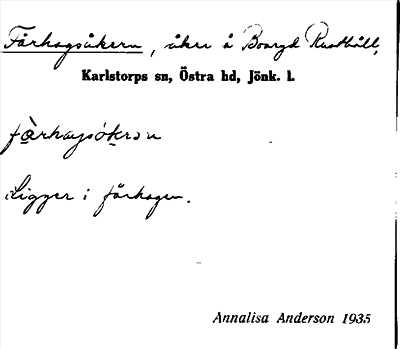 Fårhagsåkern, åker å Boaryd Rusthåll,
Karlstorps sn, Östra hd, Jönk. l.
Ligger i fårhagen.
Annalisa Anderson 1935